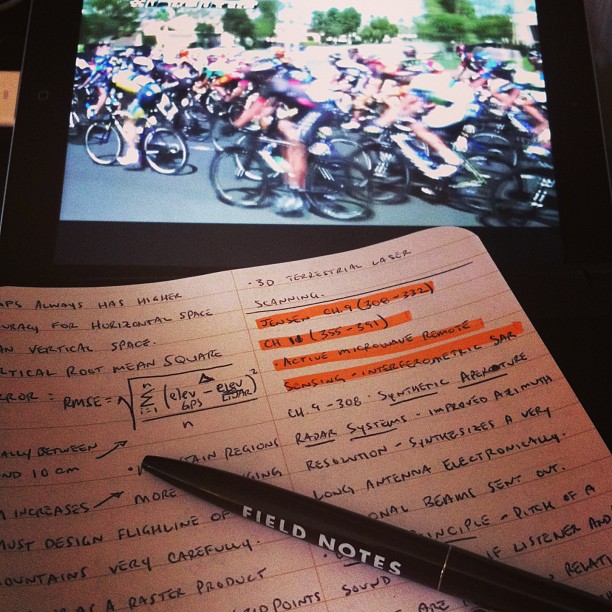 GPS ALWAYS HAS HIGHER
ACCURACY FOR HORIZONTAL SPACE
THAN VERTICAL SPACE.
VERTICAL ROOT MEAN SQUARE
ERROR : RMSE = √ Σ i=1 n (elev GPS - elev LIDAR)² / n
ALLY BETWEEN
ND 10 cm
INCREASES → MORE
MUST DESIGN FLIGHTLINE OF
MOUNTAINS VERY CAREFULLY.
AS A RASTER PRODUCT
• 3D TERRESTRIAL LASER
SCANNING.
JENSEN CH.9 (308-332)
CH 10 (355-391)
• ACTIVE MICROWAVE REMOTE
SENSING - INTERFEROMETRIC SAR
CH. 9 - 308 • SYNTHETIC APERTURE
RADAR SYSTEMS - IMPROVED AZIMUTH
RESOLUTION - SYNTHESIZES A VERY
LONG ANTENNA ELECTRONICALLY.
ONAL BEAMS SENT OUT.
INCIPLE - PITCH OF A
SOUND IF LISTENER AND
POINTS ARE RELATI
FIELD NOTES